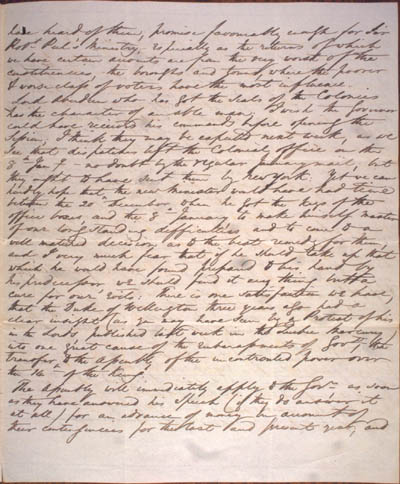 have heard of them, promise favourably enough for Sir
Robt Peel's Ministry, especially as the returns of which
we have certain accounts are from the very worst of the
constituencies, the boroughs and towns, where the poorer
& worse class of voters have the most influence.
Lord Aberdeen who has got the Seals of the Colonies
has the character of an able man. I wish the Governor
could have received his commands before opening the
Session, I think they may be expected next week as we
see that despatches left the Colonial office on the
8th Jan'y no doubt by the regular January mail, but
they ought to have sent them by New York. Yet we can
hardly hope that the new Minister would have had time
between the 20th December when he got the keys of the
office boxes, and the 8 January to make himself master
of our long standing difficulties and to come to a
well matured decision as to the best remedy for them,
and I very much fear that if he should take up that
which he would have found prepared to his hand by
his predecessor we should find it any thing but a
cure for our evils. there is one satisfaction we have,
that the Duke of Wellington three years ago had a
clear insight (as you may have seen by a Protest of his
in the Lords published last week in the Quebec Mercury
into one great cause of the embarrassments of Govt the
transfer to the Assembly of the uncontrouled power over
the
The Assembly will immediately apply to the Govr as soon
as they have answered his Speech (if they do answer it
at all) for an advance of money on account of
their contingencies for the last and present year, and